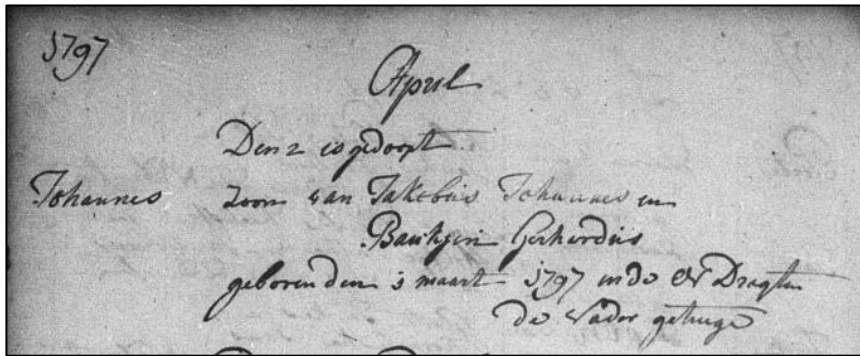 1797
April
Den 2 is gedoopt
Johannes zoon van Jakobus Johannes en
Baukjen Gerhardus
geboren den 3 maart 1797 in de Dragten
de Vader getuige